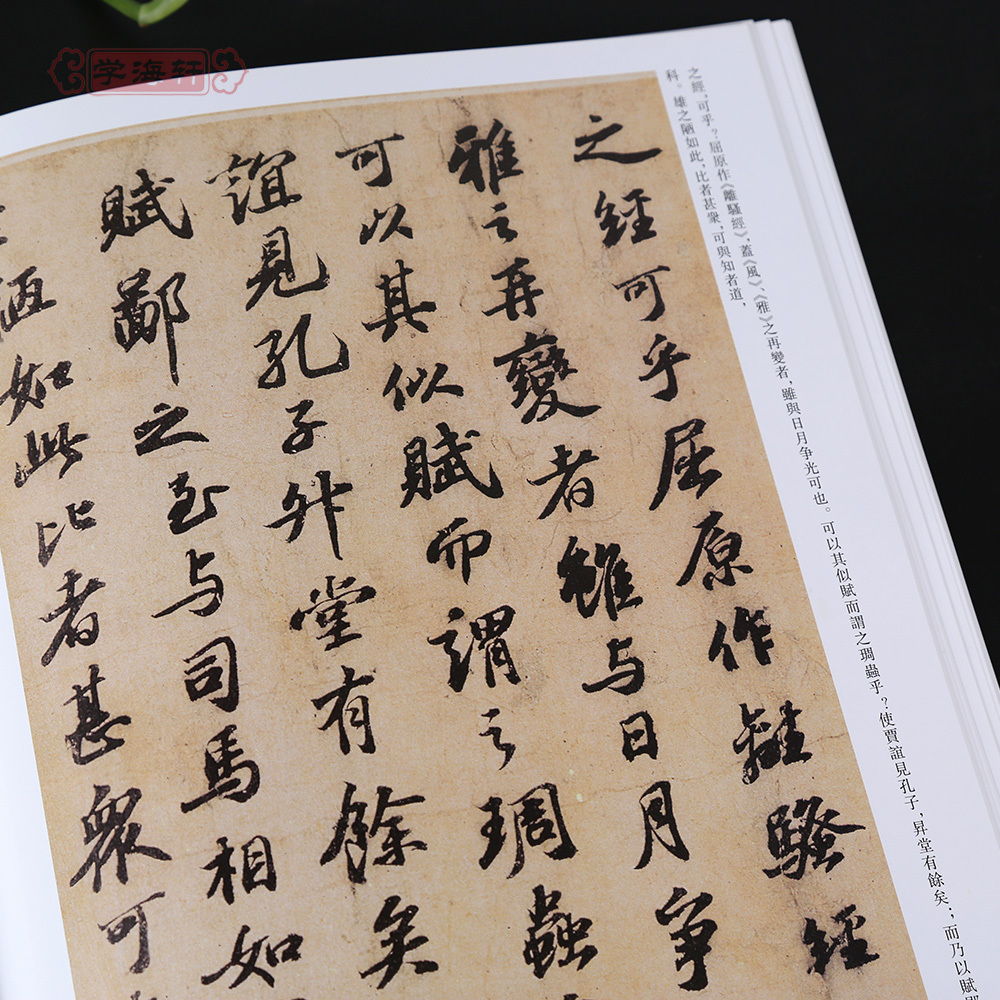 学海轩
之經，可乎？屈原作《離騷經》，蓋《風》、《雅》之再變者，雖與日月争光可也。可以其似賦而謂之琱蟲乎？使賈誼見孔子，昇堂有餘矣；而乃以賦鄙
科。雄之陋如此，比者甚衆，可與知者道，
之經可乎屈原作離騷經
雅之再變者雖与日月争
可以其似賦而謂之琱蟲
誼見孔子升堂有餘矣
賦鄙之至与司馬相如
陋如此比者甚衆可